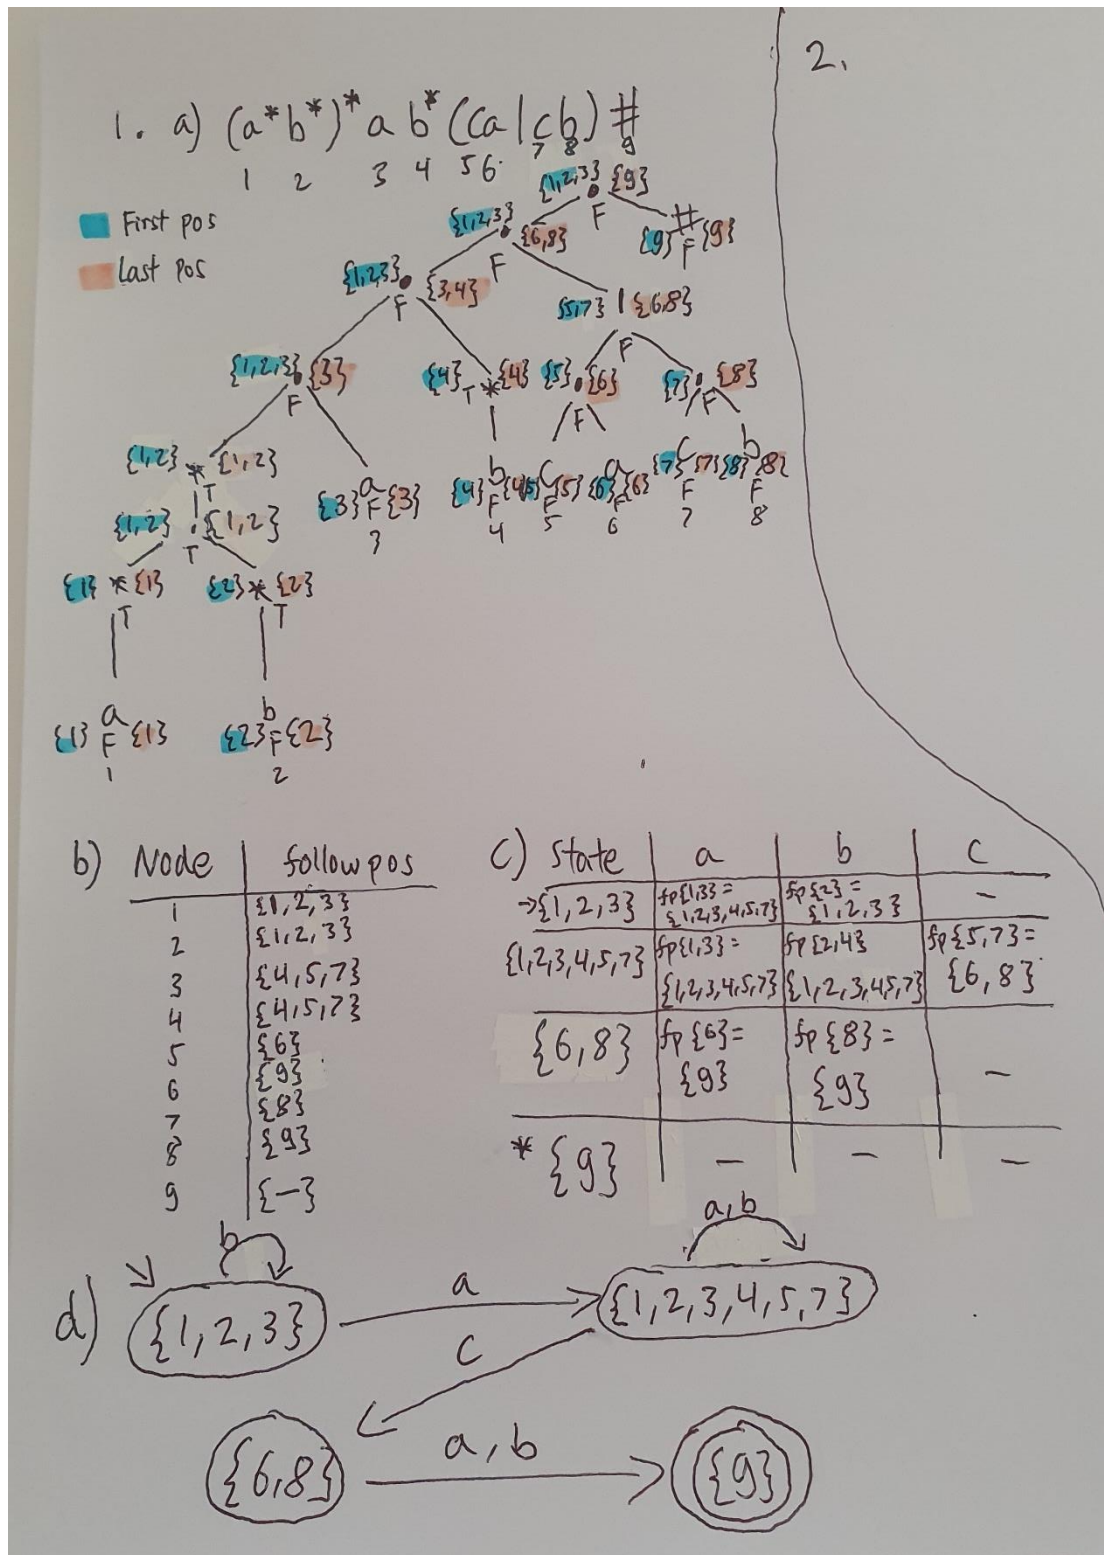 2.
1. a) (a*b*)*a b*(ca|cb) #
1 2 3 4 5 6 7 8 9
First pos
Last pos
{1,2,3} . {9}
F
{1,2,3} . {6,8}
F
{9} # {9}
F
{1,2,3} . {3,4}
F
{5,7} | {6,8}
F
{1,2,3} . {3}
F
{4} * {4}
T
{5} . {6}
F
{7} . {8}
F
{1,2} * {1,2}
T
{3} a {3}
F
3
{4} b {4}
F
4
{5} c {5}
F
5
{6} a {6}
F
6
{7} c {7}
F
7
{8} b {8}
F
8
{1,2} . {1,2}
T
{1} * {1}
T
{2} * {2}
T
{1} a {1}
F
1
{2} b {2}
F
2
b) Node followpos
1 {1,2,3}
2 {1,2,3}
3 {4,5,7}
4 {4,5,7}
5 {6}
6 {9}
7 {8}
8 {9}
9 {-}
c) state a b c
→{1,2,3} fp{1,3}= fp{2}= -
{1,2,3,4,5,7} {1,2,3}
{1,2,3,4,5,7} fp{1,3}= fp{2,4} fp{5,7}=
{1,2,3,4,5,7} {1,2,3,4,5,7} {6,8}
{6,8} fp{6}= fp{8}= -
{9} {9}
* {9} - - -
d)
b
{1,2,3}
a
a,b
{1,2,3,4,5,7}
c
{6,8}
a,b
{9}